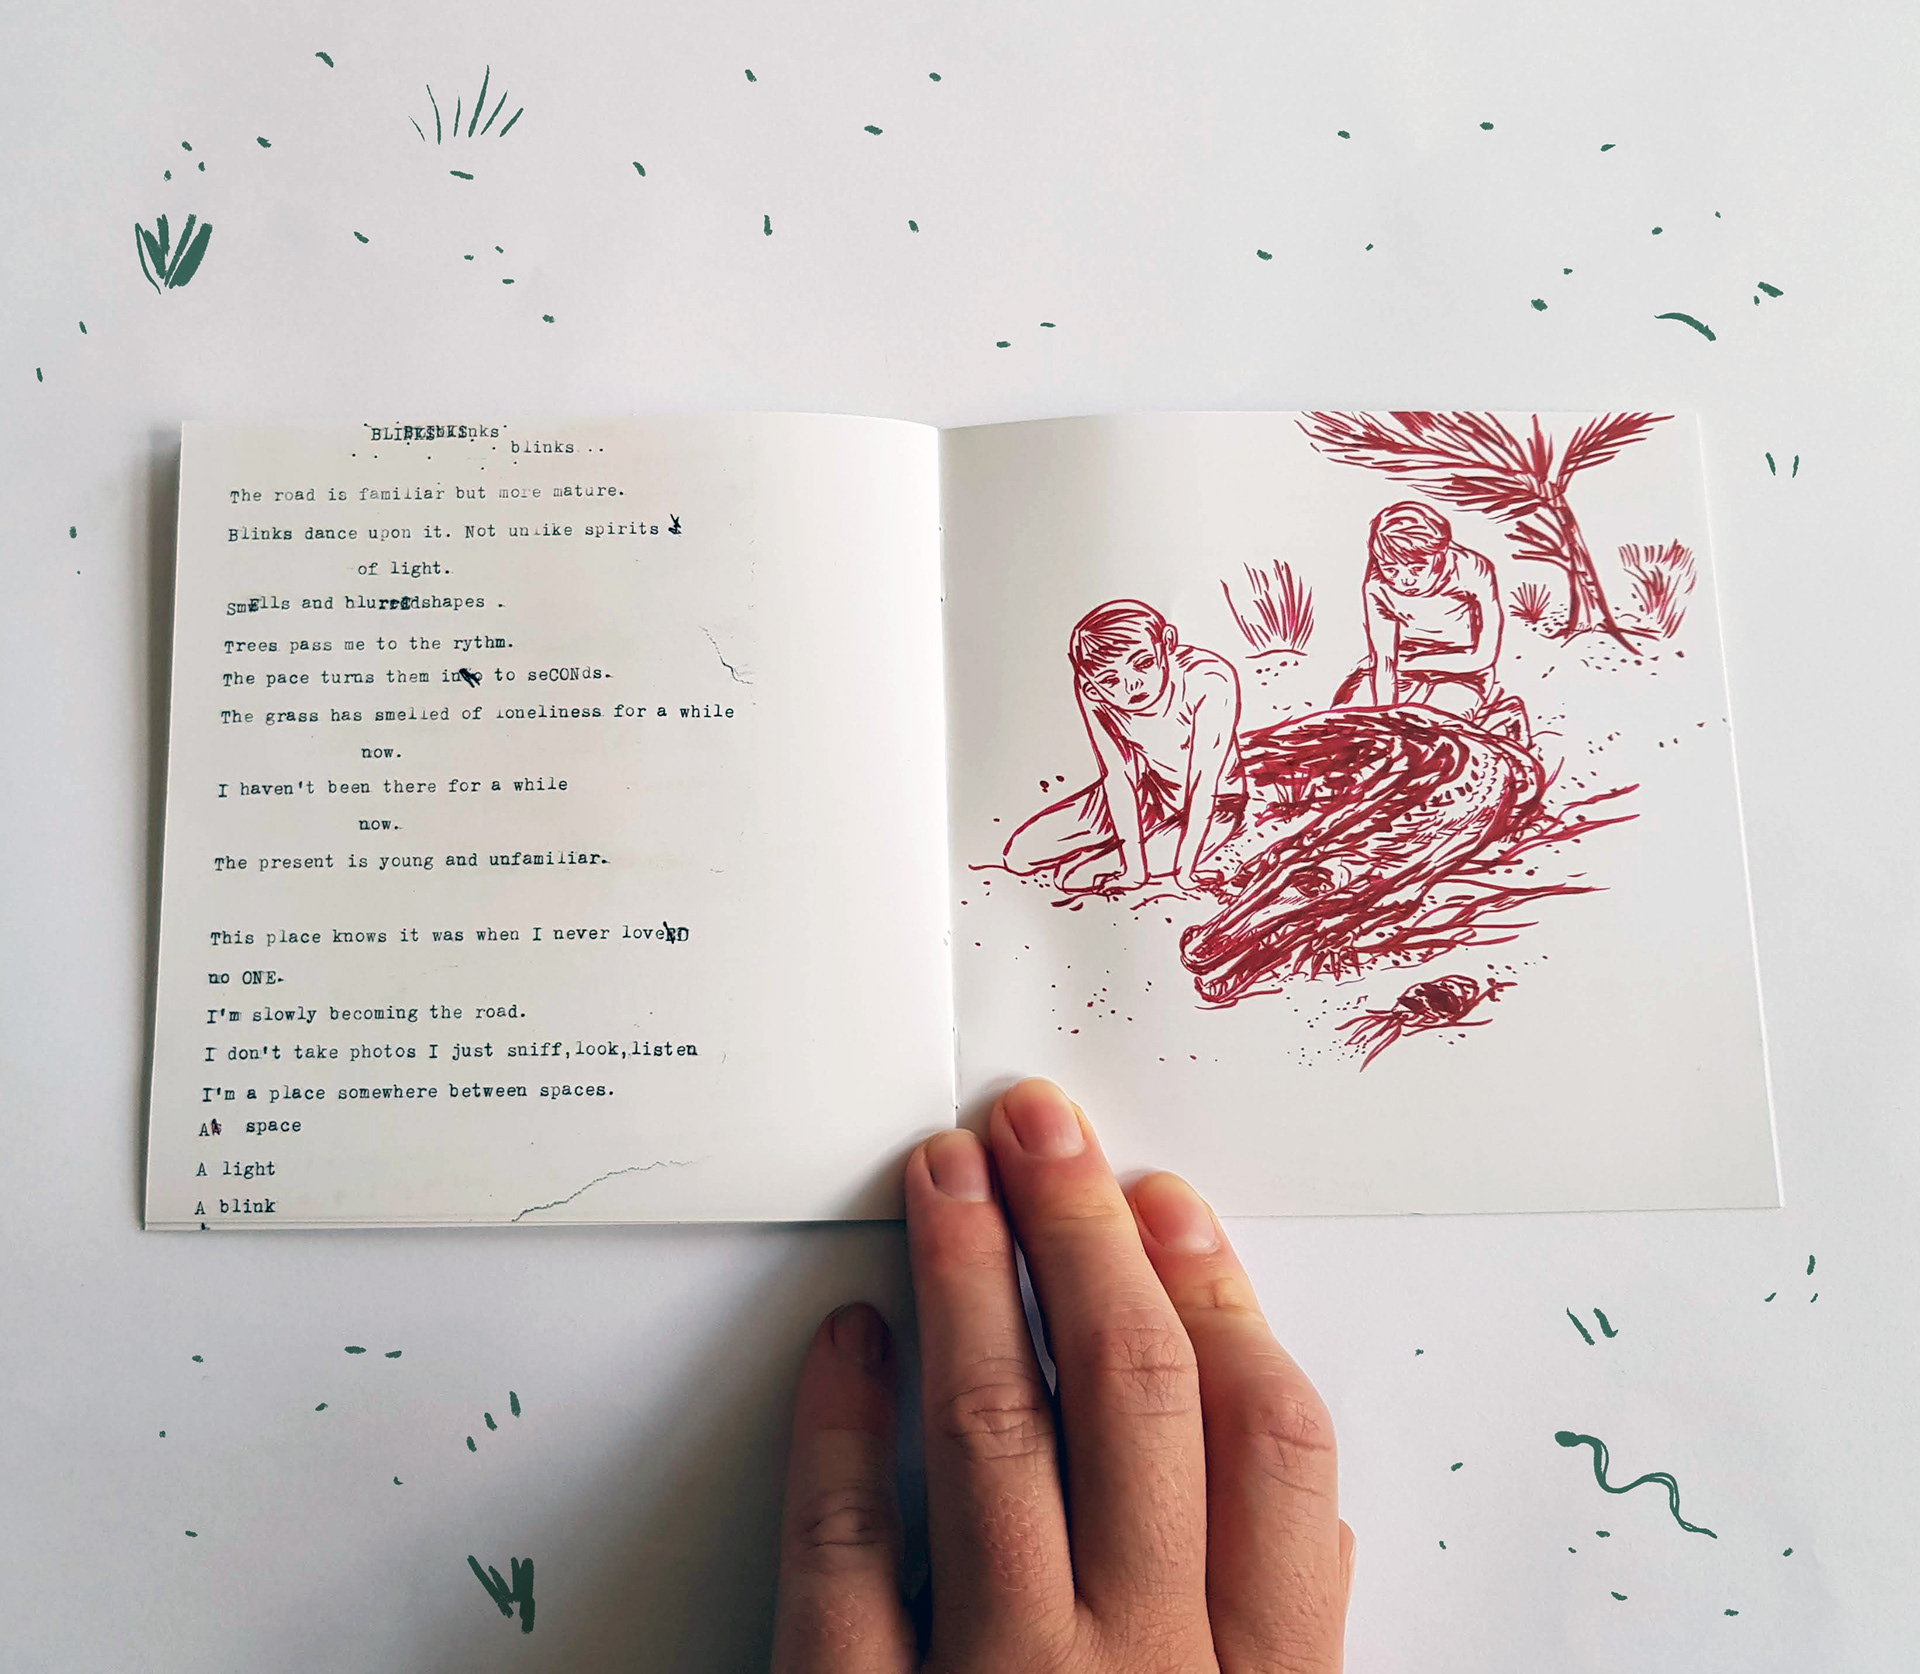 BLINKSBLINKSblinks
blinks...
The road is familiar but more mature.
Blinks dance upon it. Not unlike spirits
of light.
SmElls and blurrEdshapes .
Trees pass me to the rythm.
The pace turns them into to seCONds.
The grass has smelled of loneliness for a while
now.
I haven't been there for a while
now.
The present is young and unfamiliar.
This place knows it was when I never loveD
no ONE.
I'm slowly becoming the road.
I don't take photos I just sniff,look,listen
I'm a place somewhere between spaces.
A space
A light
A blink